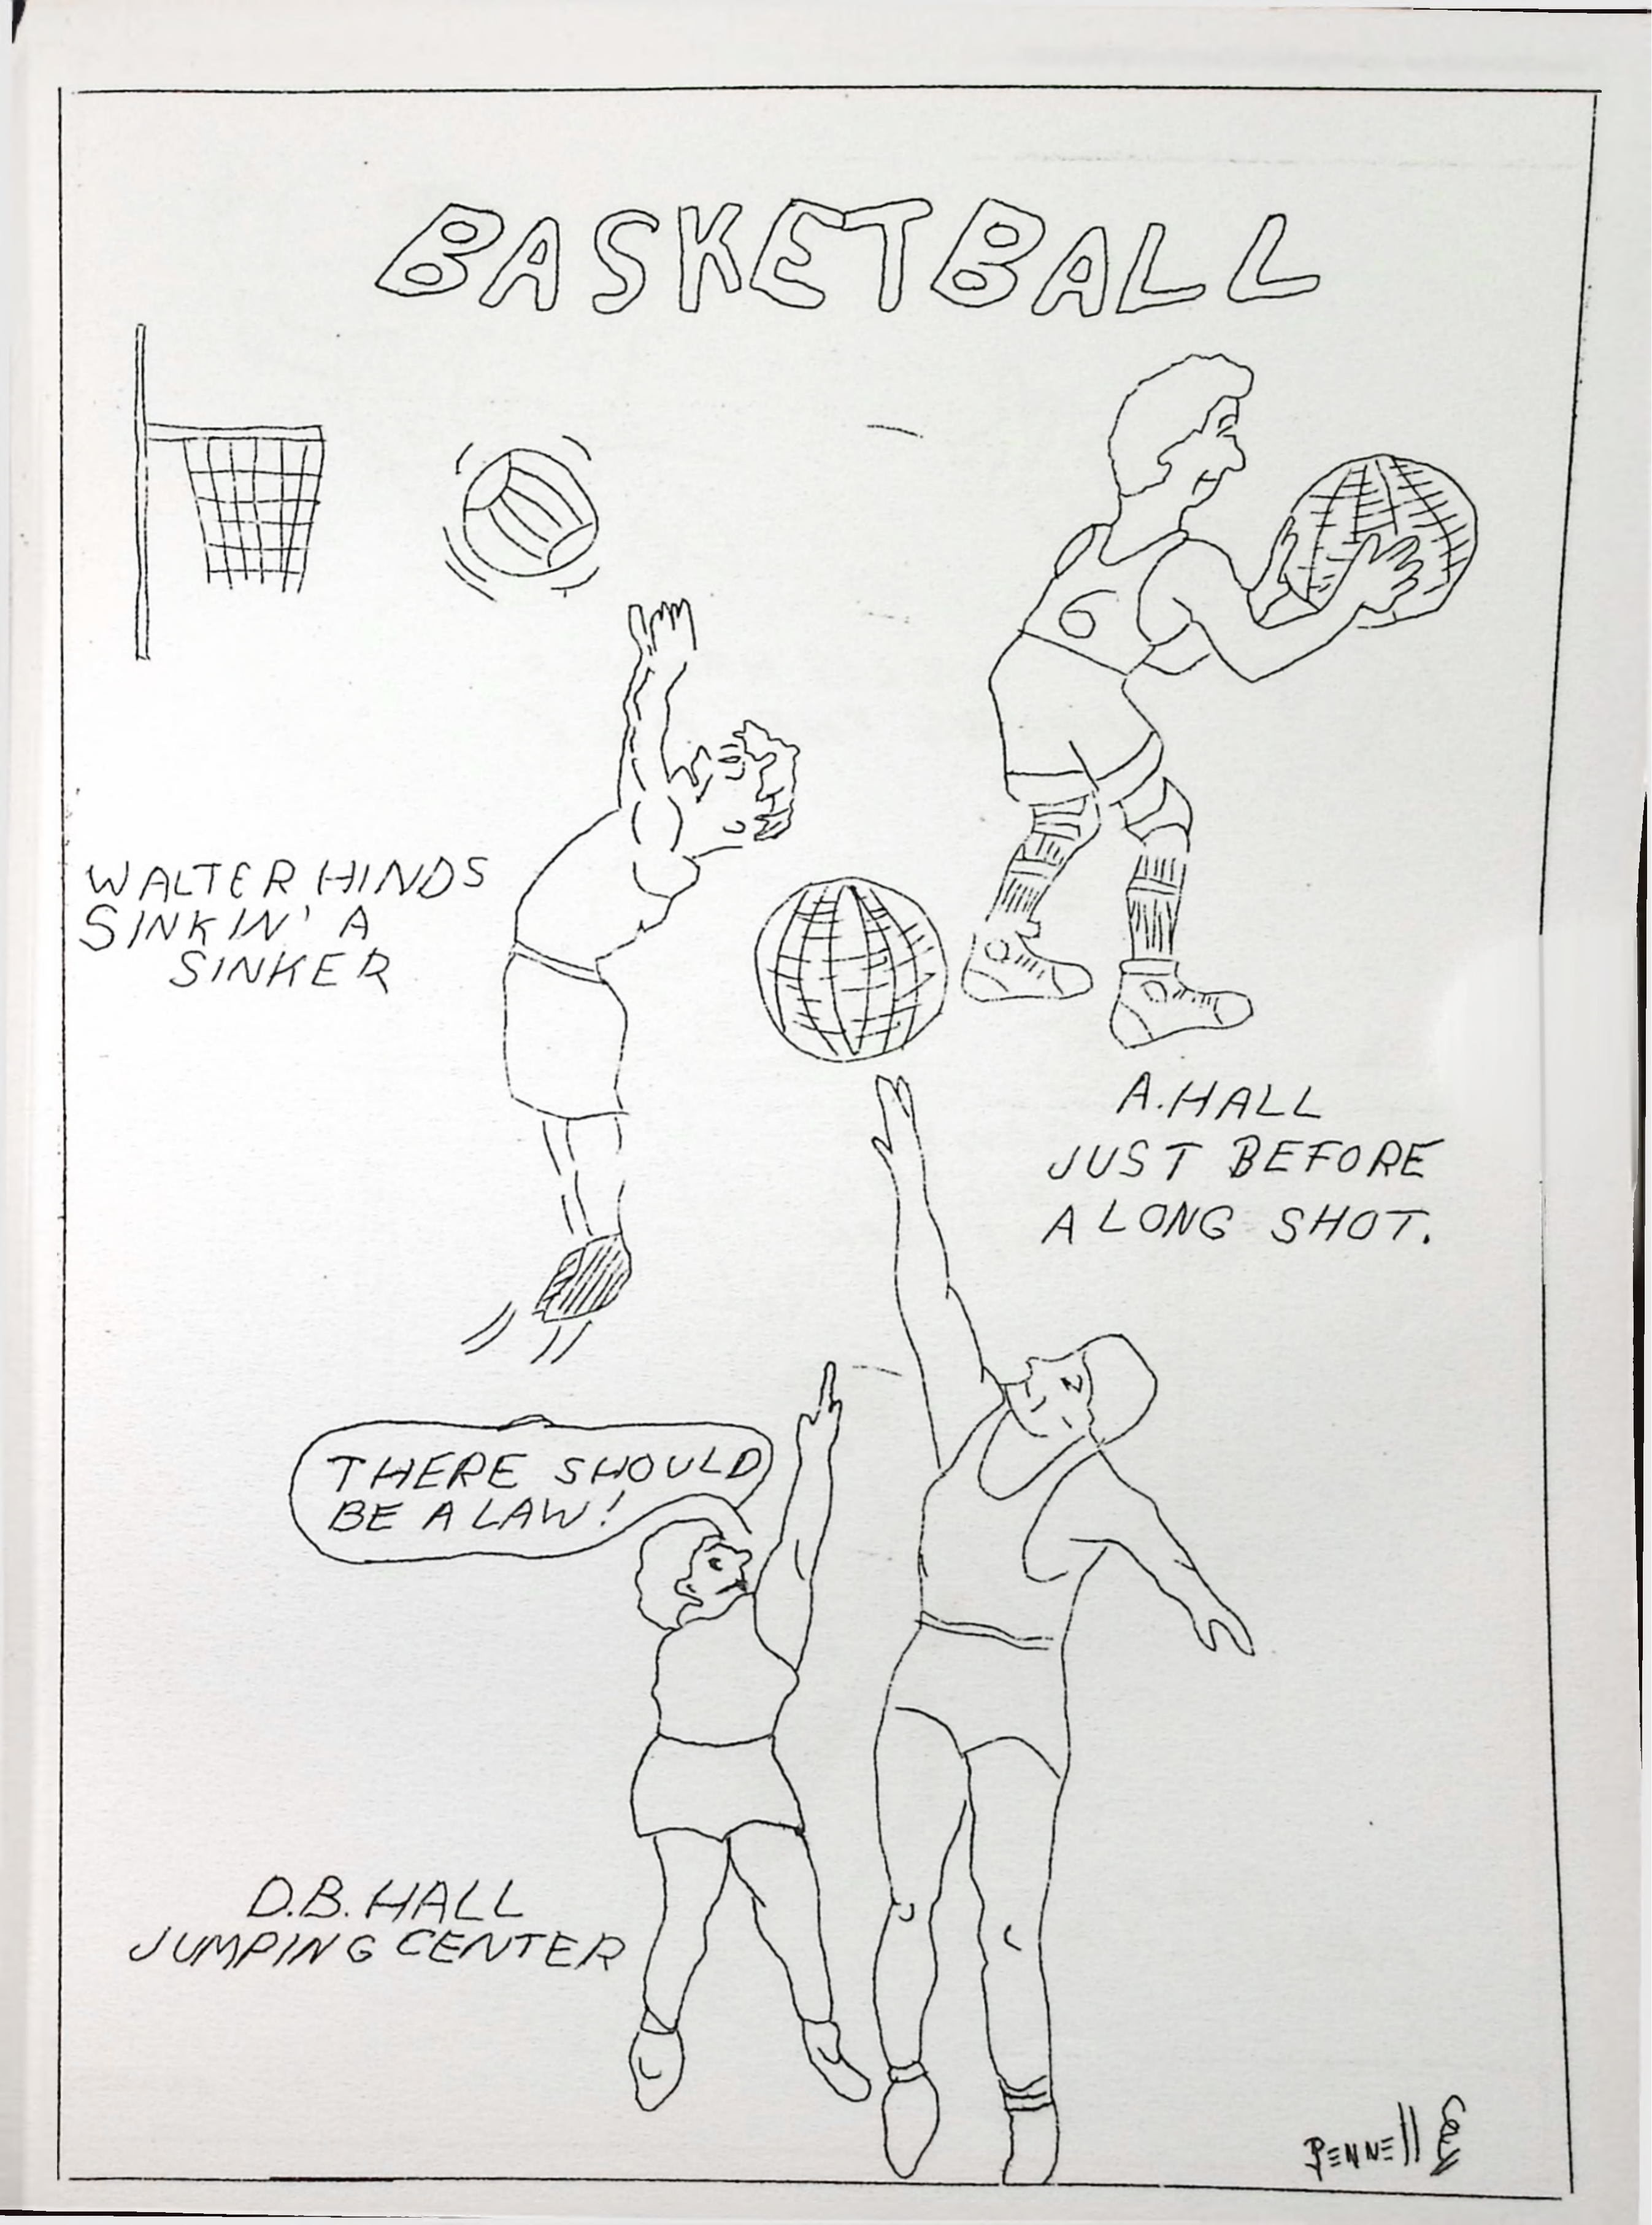 BASKETBALL
6
WALTER HINDS
SINKIN' A
SINKER
A. HALL
JUST BEFORE
A LONG SHOT.
THERE SHOULD
BE A LAW!
D.B. HALL
JUMPING CENTER
PENNELL